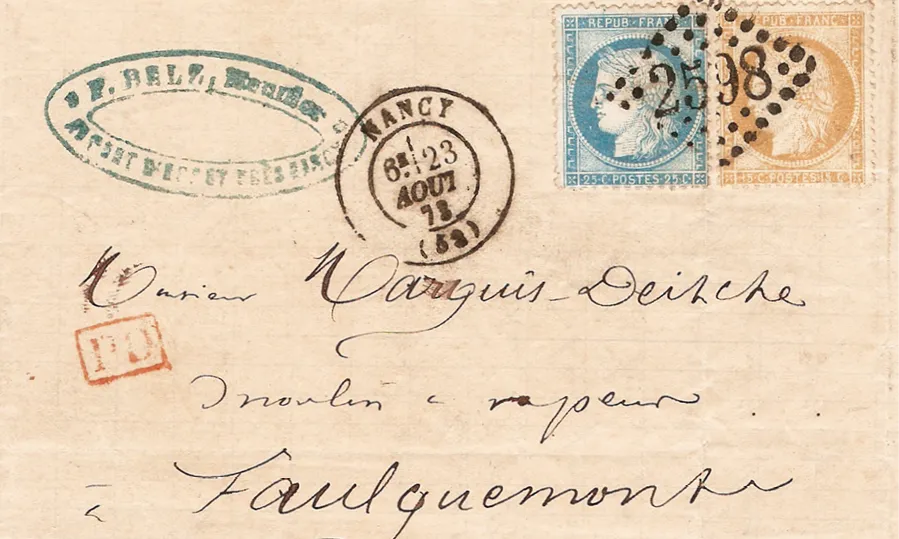 F. BELZ, Meunier
NANCY
6E 23
AOUT
73
(52)
REPUB. FRANC.
25 C. POSTES 25 C.
2598
REPUB. FRANC.
15 C. POSTES 15 C.
Monsieur Marquis-Deitche
PD
moulin à vapeur
à Faulquemont